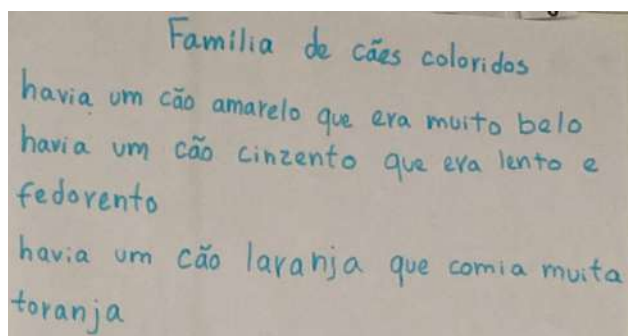 Família de cães coloridos
havia um cão amarelo que era muito belo
havia um cão cinzento que era lento e
fedorento
havia um cão laranja que comia muita
toranja